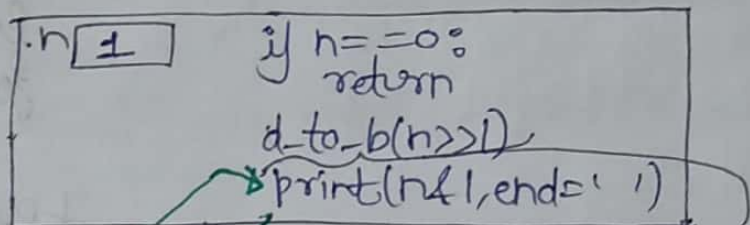 n 1 if n==0:
return
d_to_b(n>>1)
print(n&1,end=' ')